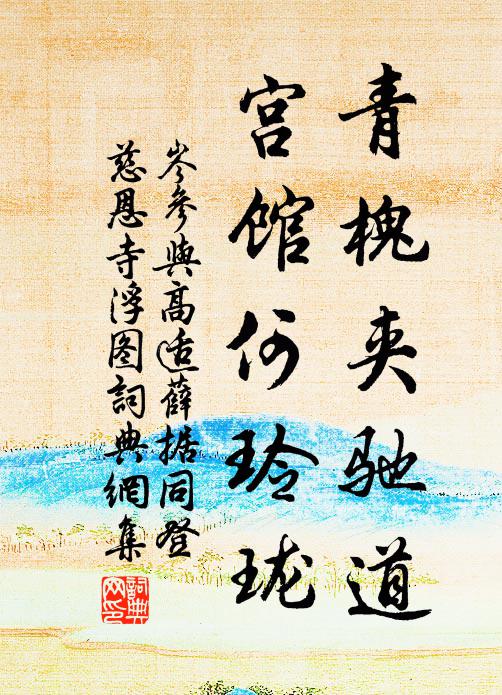 青槐夹驰道
宫馆何玲珑
岑参與高适薛据同登
慈恩寺浮图詞典網集
詞典网印